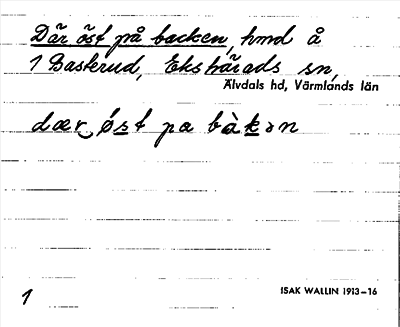 Där öst på backen, hmd å
1 Basterud, Ekshärads sn,
Älvdals hd, Värmlands län
dær øst pa bàkən
ISAK WALLIN 1913–16
1